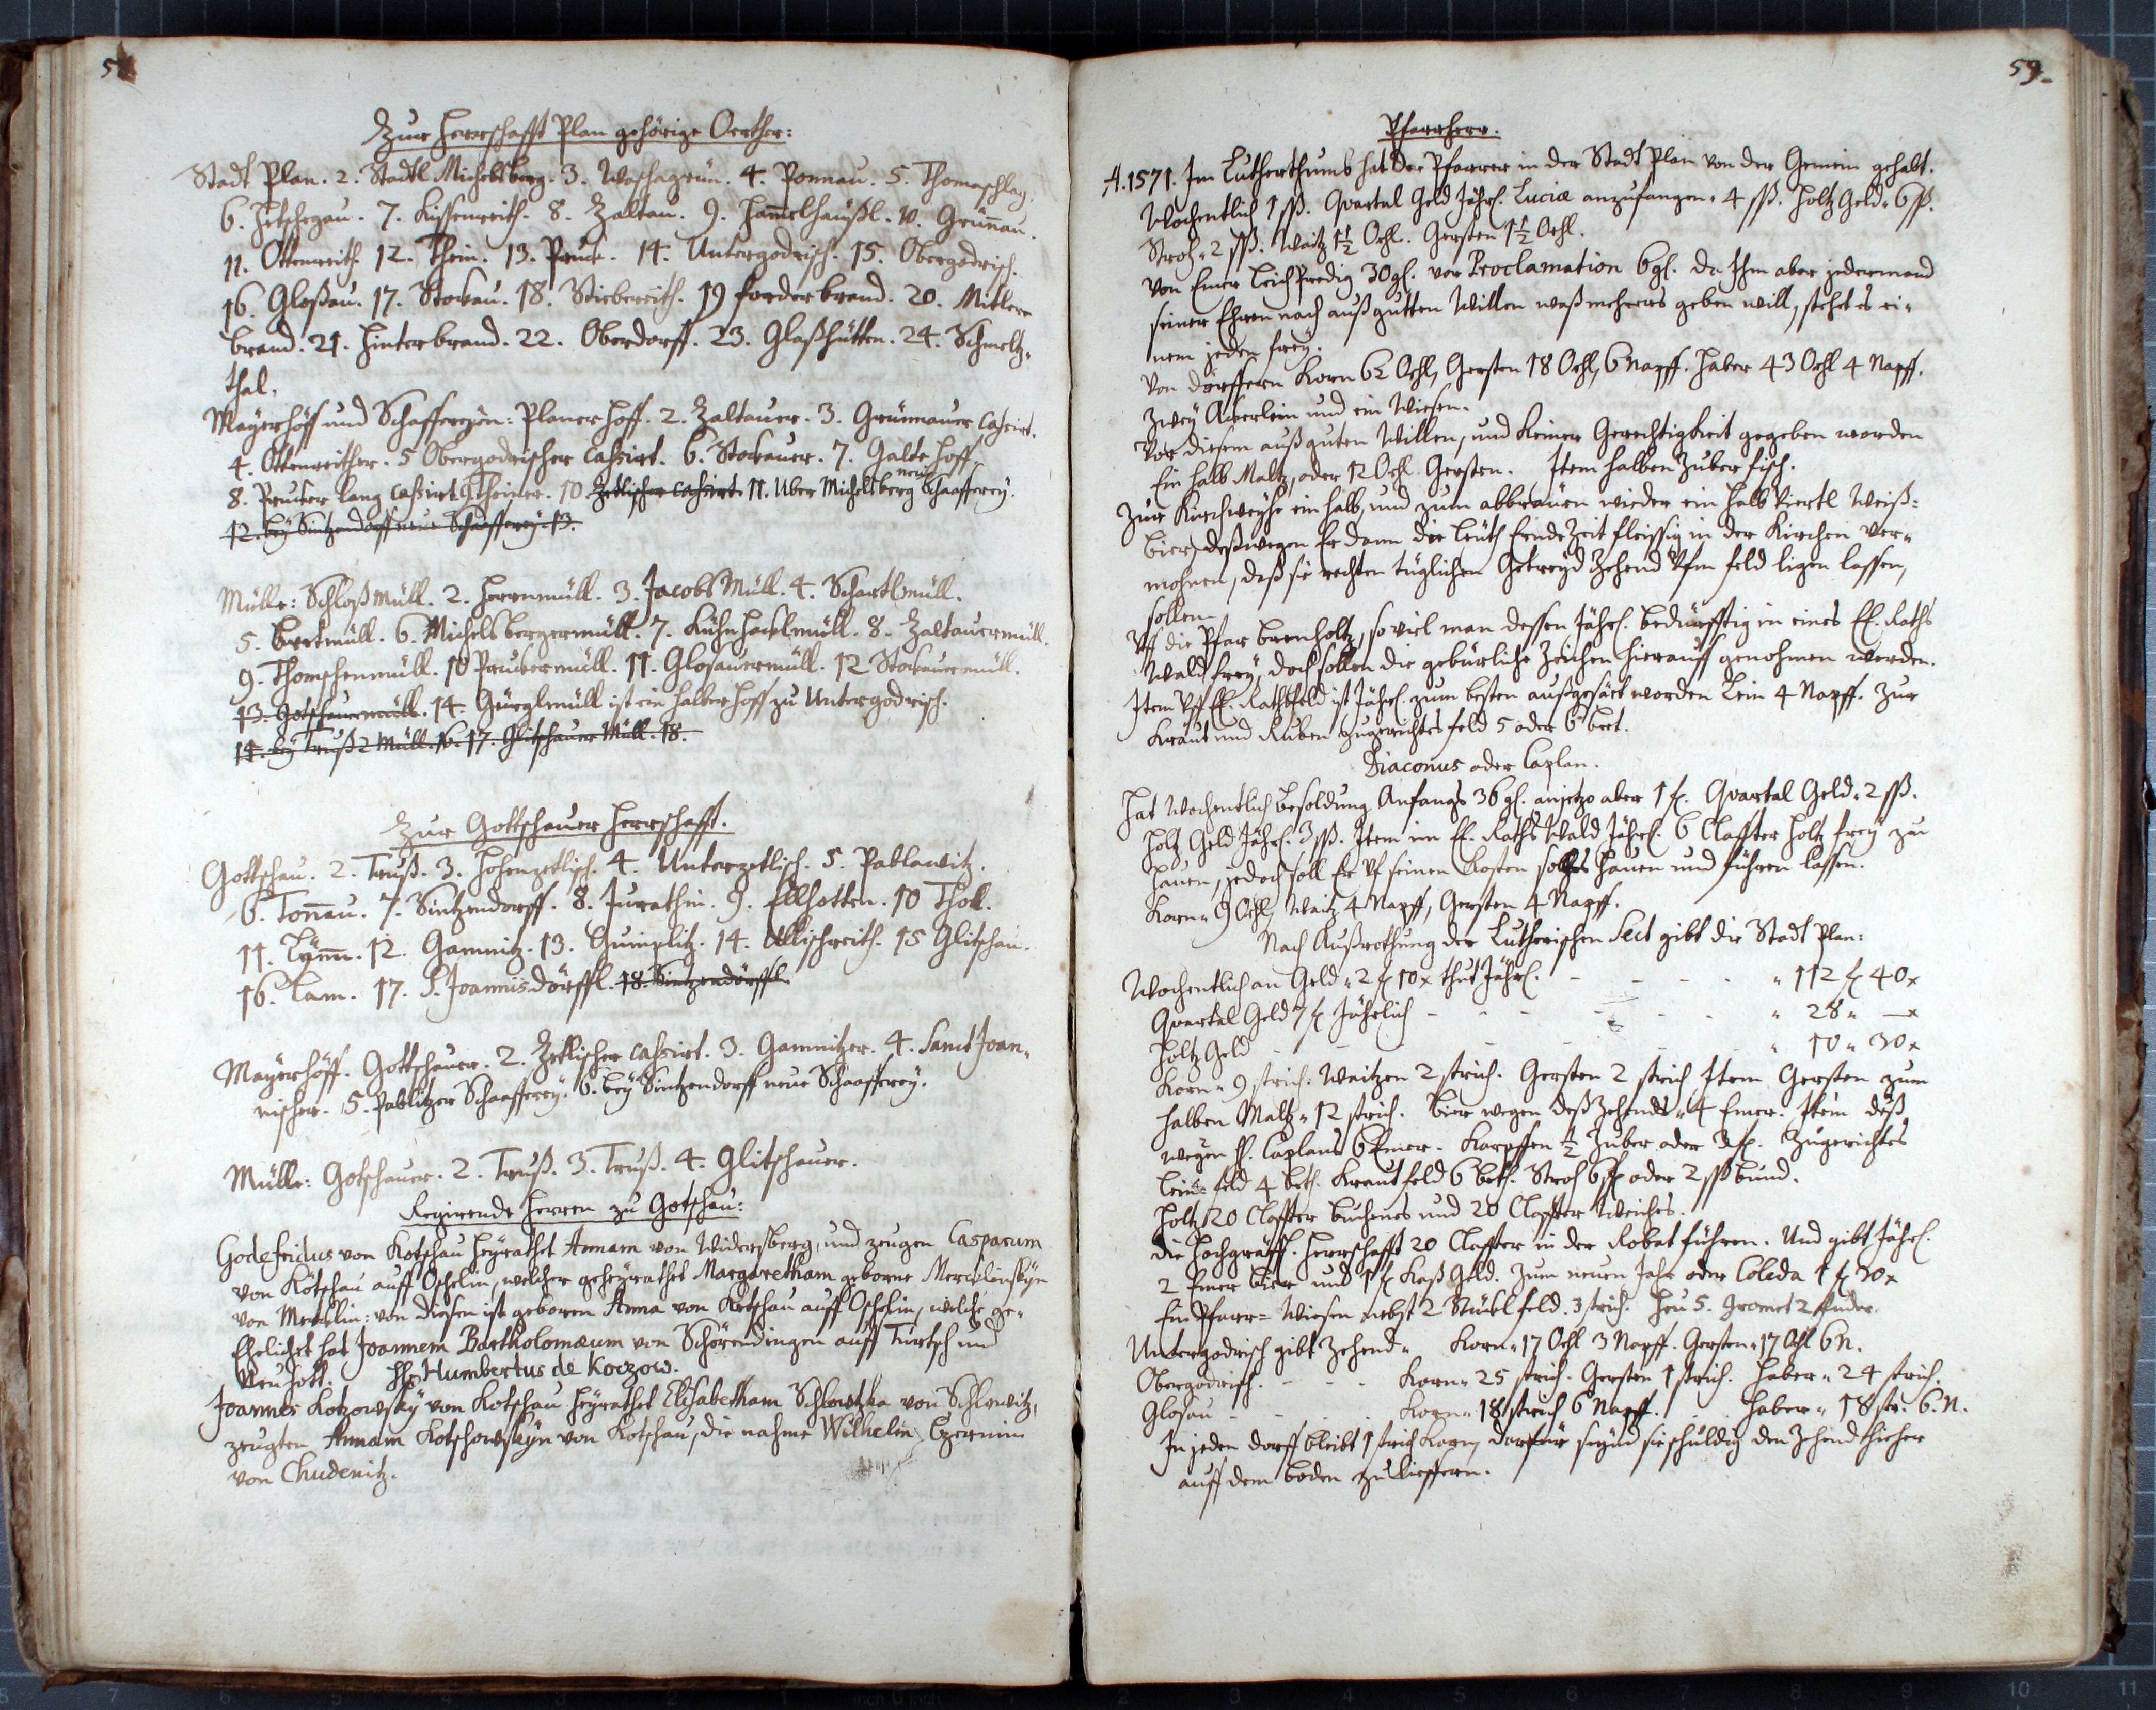 Zur Herrschafft Plan gehörige Oerther:
Stadt Plan. 2. Stadtl Michelsberg. 3. Waschagrün. 4. Ponnau. 5. Thomaschlag.
6. Hetschegau. 7. Küssenreith. 8. Zaltau. 9. Hammelhäußl. 10. Grünnau.
11. Ottenreith. 12. Thein. 13. Pruck. 14. Untergodrisch. 15. Obergodrisch.
16. Gloßau. 17. Stokau. 18. Stiebereith. 19 forderbrand. 20. Mitlere
brand. 21. Hinterbrand. 22. Oberdorff. 23. Glaßhütten. 24. Schmeltz-
thal.
Mayerhöff und Schaffereyen: Planer Hoff. 2. Zaltauer. 3. Grünnauer Cahsirt.
4. Ottenreither. 5 Obergodrischer Cahsirt. 6. Stokauer. 7. Galte Hoff
8. Pruker lang Cahsirt 9 Theiner. 10. Zetlischer Cahsirt. 11. Uber Michelsberg neue Schaafferey.
12. bey Sintzendorff neue Schaafferey. 13.
Mülle: Schloßmüll. 2. Herrnmüll. 3. Jacobs Müll. 4. Schartlmüll.
5. Bretmüll. 6. Michelsbergermüll. 7. Kühnhaklmüll. 8. Zaltauermüll.
9. Thomschenmüll. 10 Prukermüll. 11. Glosauermüll. 12 Stokauermüll.
13. Gotschauermüll. 14. Gürglmüll ist ein halber Hoff zu Untergodrisch.
14. bey Truß 2 Müll. 16. 17. Glitschauer Müll. 18.
Zur Gottschauer Herrschafft.
Gottschau. 2. Truß. 3. Hohenzetlisch. 4. Unterzetlisch. 5. Pablawitz.
6. Tonnau. 7. Sintzendorff. 8. Jurathin. 9. Ellhotten. 10 Tholl.
11. Lÿnn. 12. Gamnitz. 13. Gumplitz. 14. Ullischreith. 15 Glitschau.
16. Lam. 17. S. Joannisdörffl. 18. Sintzendörffl.
Mayerhöff. Gottschauer. 2. Zetlischer Cahsirt. 3. Gamnitzer. 4. Sanct Joan-
nischer. 5. Pablitzer Schaafferey. 6. bey Sintzendorff neue Schaafferey.
Mülle: Gotschauer. 2. Truß. 3. Truß. 4. Glitschauer.
Regirende Herren zu Gotschau:
Godefridus von Kotschau heyrathet Annam von Widersberg, und zeugen Casparum
von Kötschau auff Oschelin, welcher geheyrathet Margaretham geborne Merculinskyn
von Merculin: von diesen ist geboren Anna von Kotschau auff Oschelin, welche ge-
Ehelichet hat Joannem Bartholomæum von Schörendingen auff Turtsch und
Neuhott. Humbertus de Koczow.
Joannes Kotzowsky von Kotschau heyrathet Elisabetham Schlowitzka von Schlowitz,
zeugten Annam Kotschowskyn von Kotschau, die nahme Wilhelm Czernin
von Chudenitz.
59.
Pfarrherr.
A. 1571. Im Lutherthumb hat der Pfarrer in der Stadt Plan von der Gemein gehabt.
Wochentlich 1 ßß. Quartal Geld Jährl. Luciæ anzufangen. 4 ßß. Holtz Geld. 6 ß.
Stroh. 2 ßß. Waitz 1½ Ochl. Gersten 1½ Ochl.
Von Einer Leichpredig 30 gl. von Proclamation 6 gl. da Ihm aber jedermand
seiner Ehren nach auß gutten Willen waß mehrers geben will, stehet es ei-
nem jeden frey.
Von dörffern Korn 62 Ochl, Gersten 18 Ochl, 6 Napff. Haber 43 Ochl 4 Napff.
Zwey Ackerlein und ein Wiesen.
Vor diesem auß guten Willen, und keiner Gerechtigkeit gegeben worden
Ein halb Maltz, oder 12 Ochl. Gersten. Item halben Zuber fisch.
Zur Kirchweyhe ein halb, und zum abbrauen wieder ein halb Viertl Weiß-
bier, deßwegen Er dann die Leuth Ernde Zeit fleissig in der Kirchen ver-
mohnen, daß sie rechten tüglichen Getreyd Zehend Ufm feld ligen lassen,
sollen.
Uff die Pfar brenholtz, so viel man dessen Jährl. bedürfftig in eines E. Raths
Wald frey, doch sollen die gebürliche Zeichen hierauff genohmen werden.
Item Uff E. Rathsfeld ist Jährl. zum besten außgesäet worden Lein 4 Napff. Zur
Kraut und Ruben zugerichtes feld 5 oder 6 bet.
Diaconus oder Caplan.
Hat Wochentlich Besoldung Anfangs 36 gl. anjetzo aber 1 f. Quartal Geld. 2 ßß.
Holtz Geld Jährl. 3 ßß. Item im E. Raths Wald Jährl. 6 Claffter Holtz frey zu
hauen, jedoch soll Er Uf seinen Kosten solches hauen und führen lassen.
Korn. 9 Ochl, Waitz 4 Napff, Gersten 4 Napff.
Nach Außrothung der Lutherischen Sect gibt die Stadt Plan:
Wochentlich an Geld. 2 f 10 x thut Jährl. - - - - 112 f 40 x
Quartal Geld 7 f Jährlich - - - - - 28 " — x
Holtz Geld - - - - - 10 " 30 x
Korn. 9 strich. Waitzen 2 strich. Gersten 2 strich Item Gersten zum
halben Maltz. 12 strich. Bier wegen deß Zehendt. 4 Emer. Item deß
wegen H. Caplans 6 Emer. Karpffen ½ Zuber oder 3 f. Zugerichtes
Lein-feld 4 beth. Krautfeld 6 beth. Stroh 6 ß oder 2 ßß bund.
Holtz 20 Claffter buchenes und 20 Claffter Weiches.
Die Hochgräffl. Herrschafft 20 Claffter in der Robat führen. Und gibt Jährl.
2 Emer Bier und 1 f Kaß Geld. Zum neuen Jahr oder Coleda 1 f 30 x
Ein Pfarr-Wiesen nebst 2 Stückl feld. 3 strich. Heu 5. Gromet 2 fuder.
Untergodrisch gibt Zehend. Korn. 17 Ochl 3 Napff. Gersten. 17 Ochl 6 N.
Obergodrisch. - - - Korn. 25 strich. Gersten 1 strich. Haber. 24 strich.
Glosau - - - Korn. 18 strich 6 Napff. Haber. 18 str. 6. N.
In jeden dorff bleibt 1 strich Korn, darfür seynd sie schuldig den Zehend hieher
auff dem boden zu liefferen.